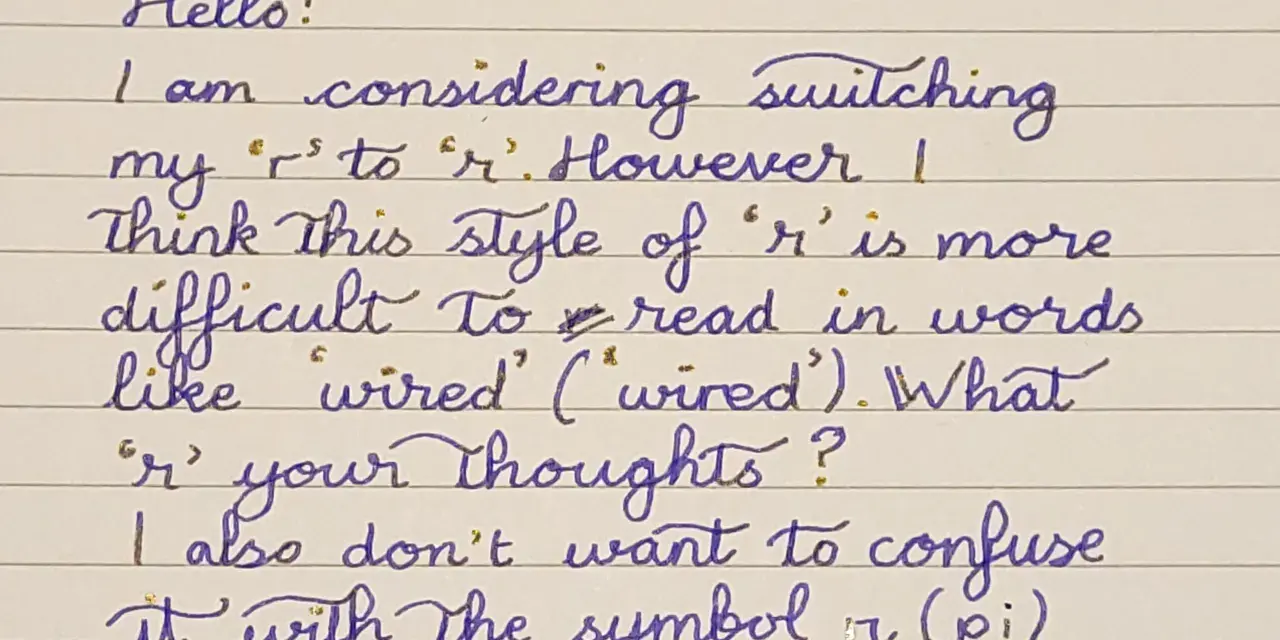 Hello!
I am considering switching
my 'r' to 'r'. However I
think this style of 'r' is more
difficult to read in words
like 'wired' ('wired'). What
'r' your thoughts?
I also don't want to confuse
it with the symbol π (pi)